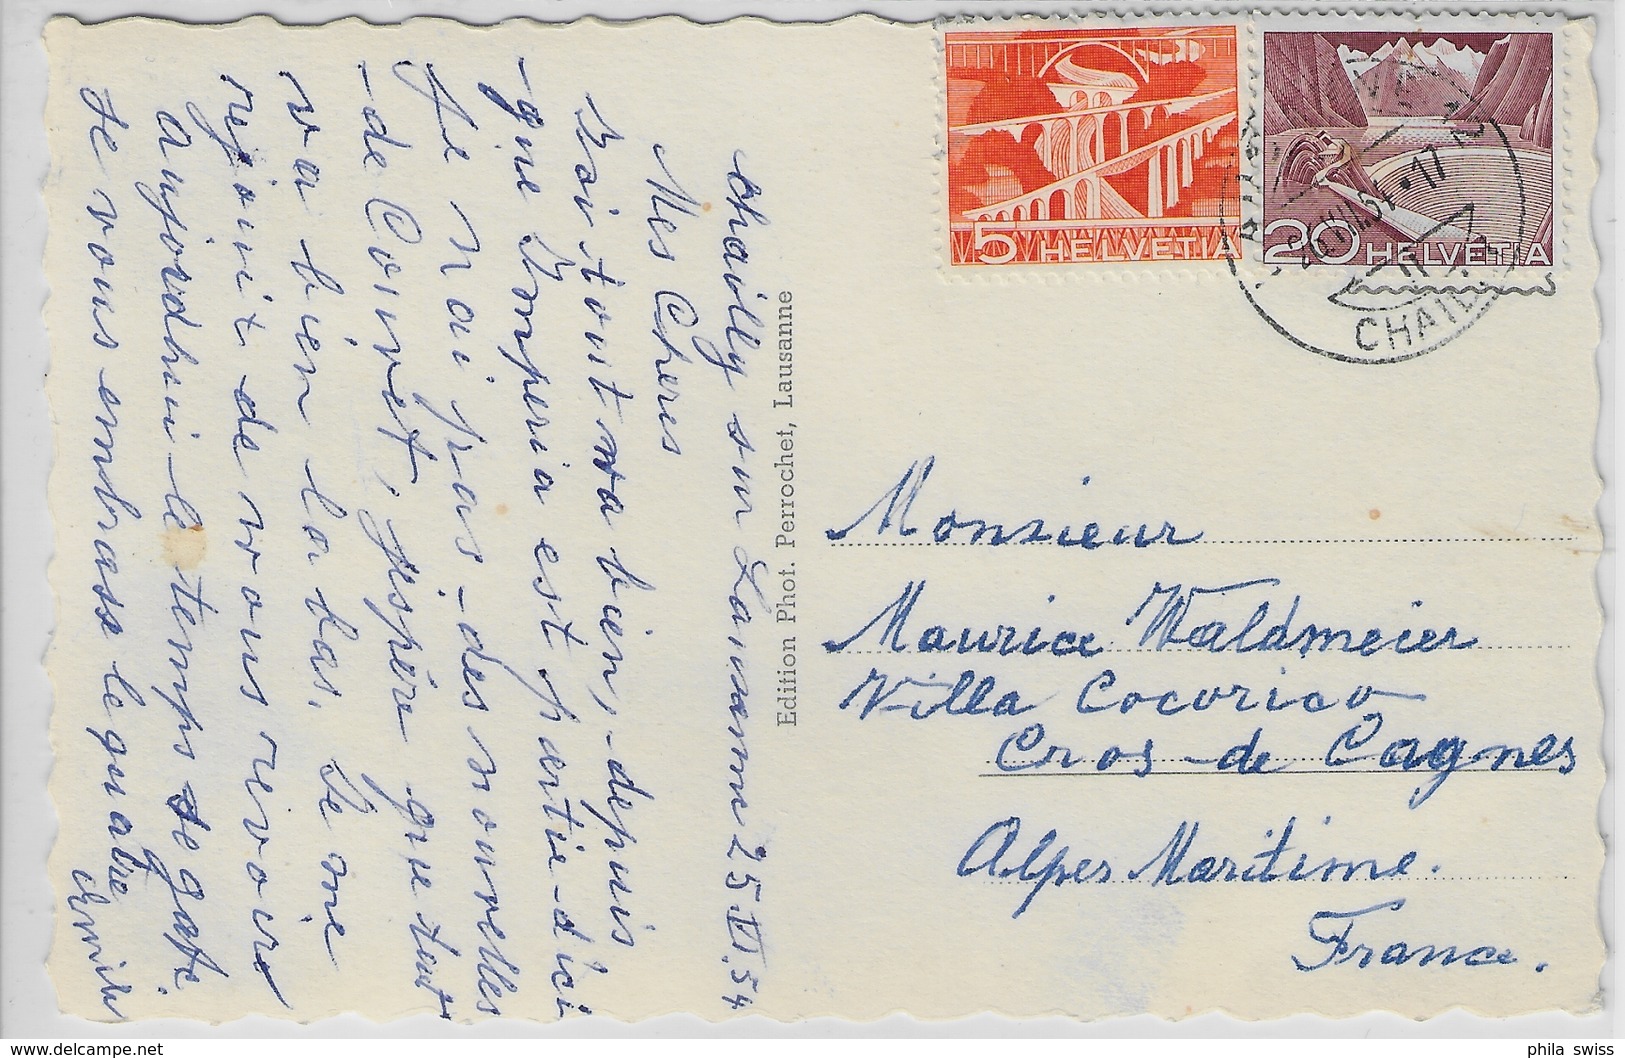 Chailly sur Lausanne 25.VI.54
Mes Cheres
Ici tout va bien, depuis
-que Imperia est partie-d'ici
Je n'ai pas-des nouvelles
-de Coivet, j'espère que tout
va bien la bas. Je me
rejouit-de vous revoire
aujourdhui le temps se gate.
Je vous embrasse le quatre
Edition Phot. Perrochet, Lausanne
5 HELVETIA
20 HELVETIA
Monsieur
Maurice Waldmeier
Villa Cocorico
Cros-de Cagnes
Alpes Maritime.
France.
phila swiss
www.delcampe.net